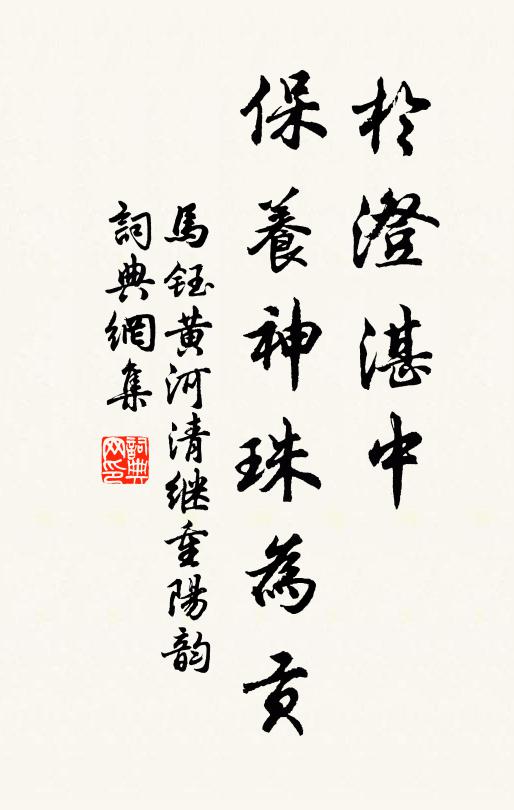 於澄湛中
保養神珠為貢
馬鈺黃河清繼重陽韵
詞典網集
詞典網印